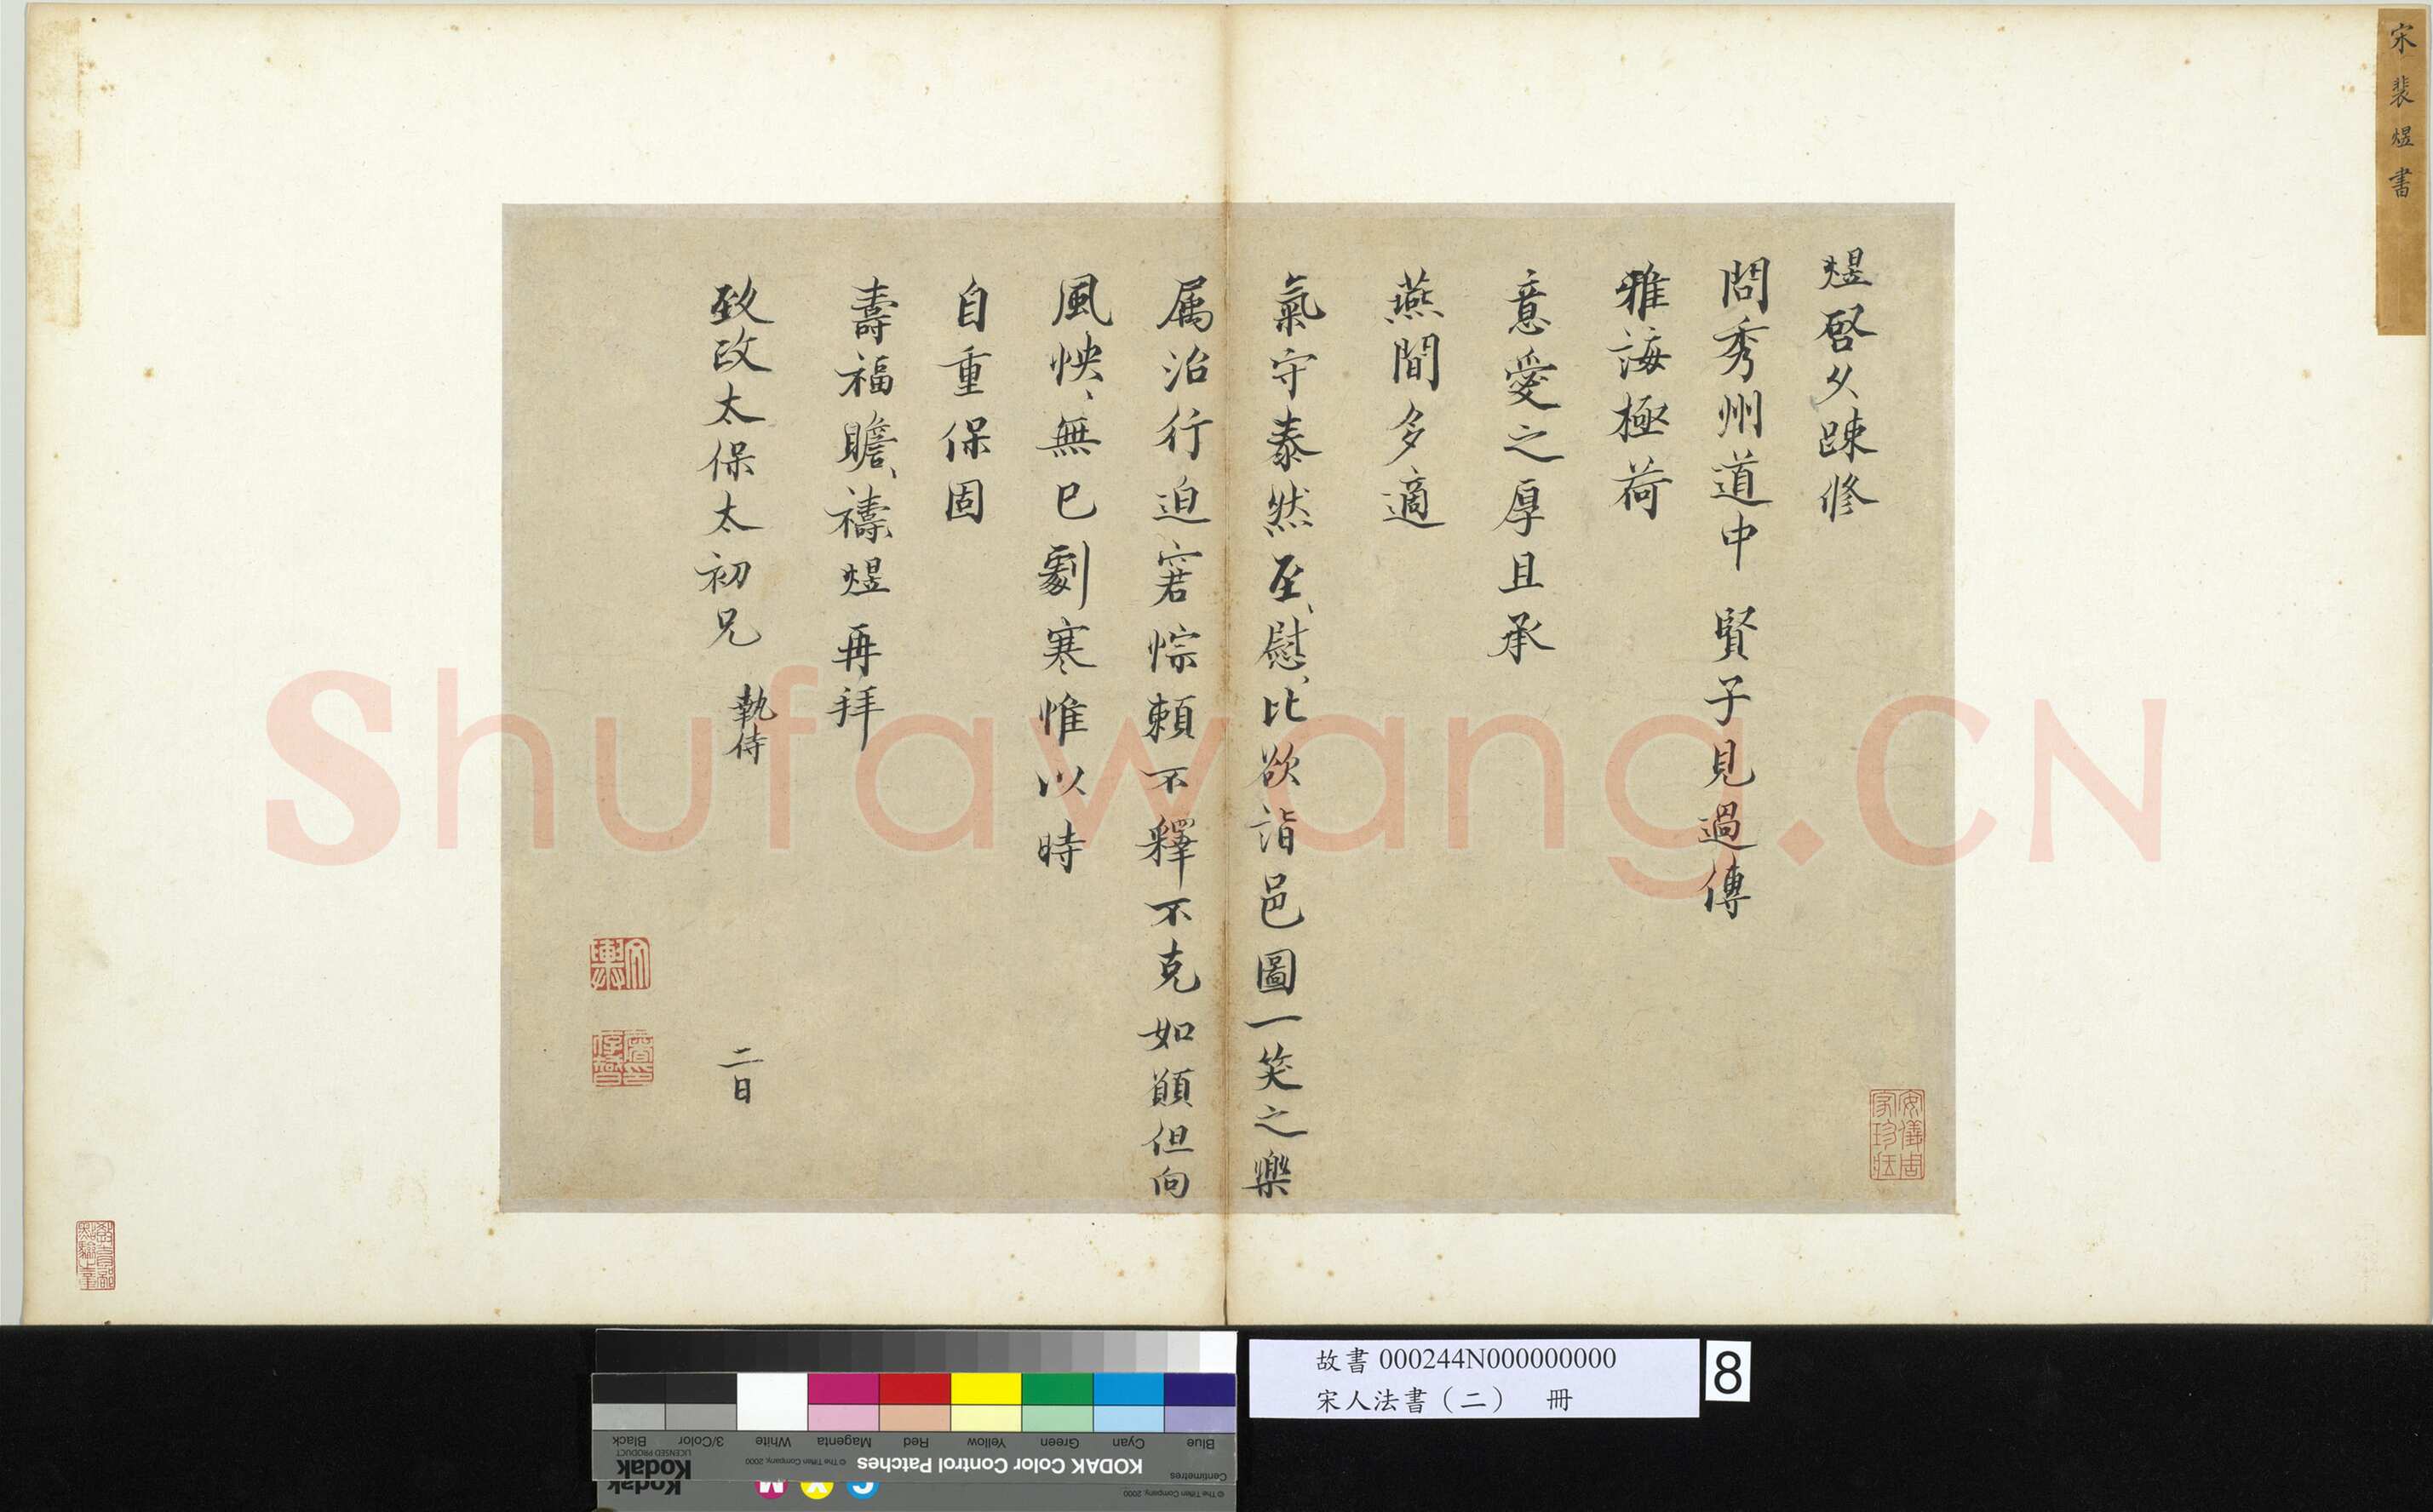 宋裴煜書
煜啓久踈修
問秀州道中 賢子見過傳
雅誨極荷
意愛之厚且承
燕閒多適
氣守泰然至、慰、比欲詣邑圖一笑之樂
属治行迫窘悰頼不釋不克如願但向
風怏、無已劇寒惟以時
自重保固
壽福瞻、禱、煜再拜
致政太保太初兄 執侍
二日
安儀周家珍藏
Shufawang.CN
故書 000244N000000000
宋人法書（二） 冊
8
Blue Cyan Green Yellow Red Magenta White 3/Color Black
KODAK Color Control Patches
© The Tiffen Company, 2000
Kodak
LICENSED PRODUCT
Centimetres
© The Tiffen Company, 2000
Kodak
C Y M